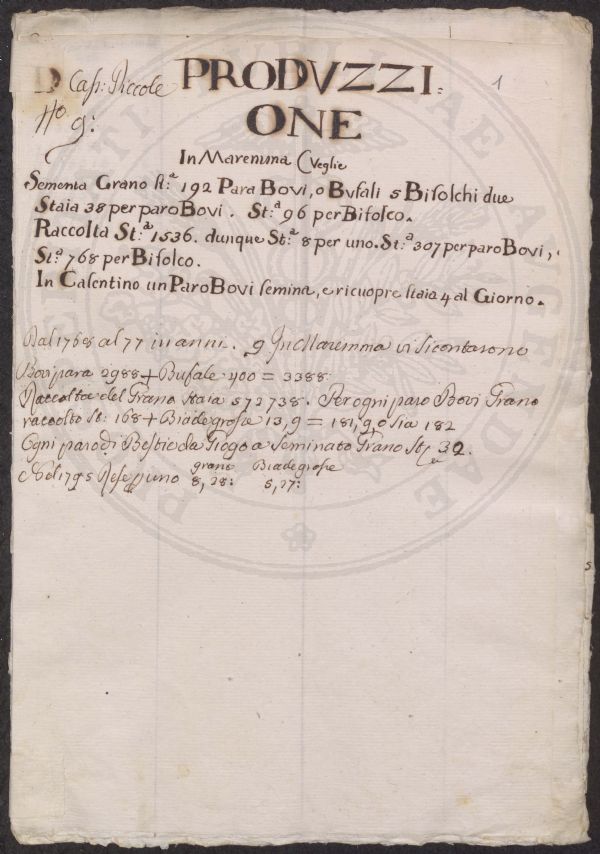 D Cas: Piccole PRODVZZI= 1
No 9: ONE
In Maremma (Veglie
Sementa Grano st.ª 192 Para Bovi, o Bufali 5 Bifolchi due
Staia 38 per paro Bovi. St.ª 96 per Bifolco.
Raccolta St.ª 1536. dunque St.ª 8 per uno. St.ª 307 per paro Bovi,
St.ª 768 per Bifolco.
In Casentino un Paro Bovi semina, e ricuopre staia 4 al Giorno.
Dal 1768 al 77 in anni. 9 In Maremma vi si contarono
Bovi para 2988 + Bufale 400 = 3388
Raccolta del Grano Staia 572738. Per ogni paro Bovi Grano
raccolto St: 168 + Biade grosse 13,9 = 181,9 o sia 182
Ogni paro di Bestie da Giogo a Seminato Grano St.ª 32.
grano Biade grosse
Nel 1795 Rese p uno 8,28: 5,27: